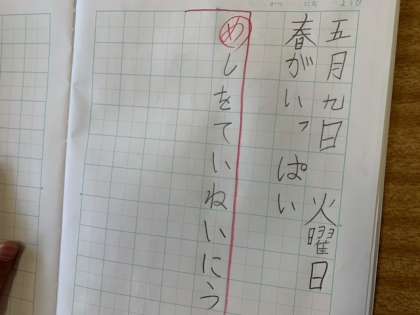 五月九日 火曜日
春がいっぱい
めしをていねいにう